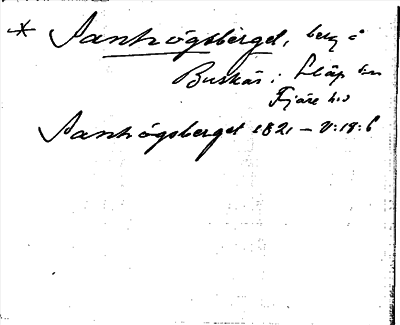 * Santhögsberget, berg å
Buskär i Släp sn
Fjäre hd
Santhögsberget 1821 – V:18:6